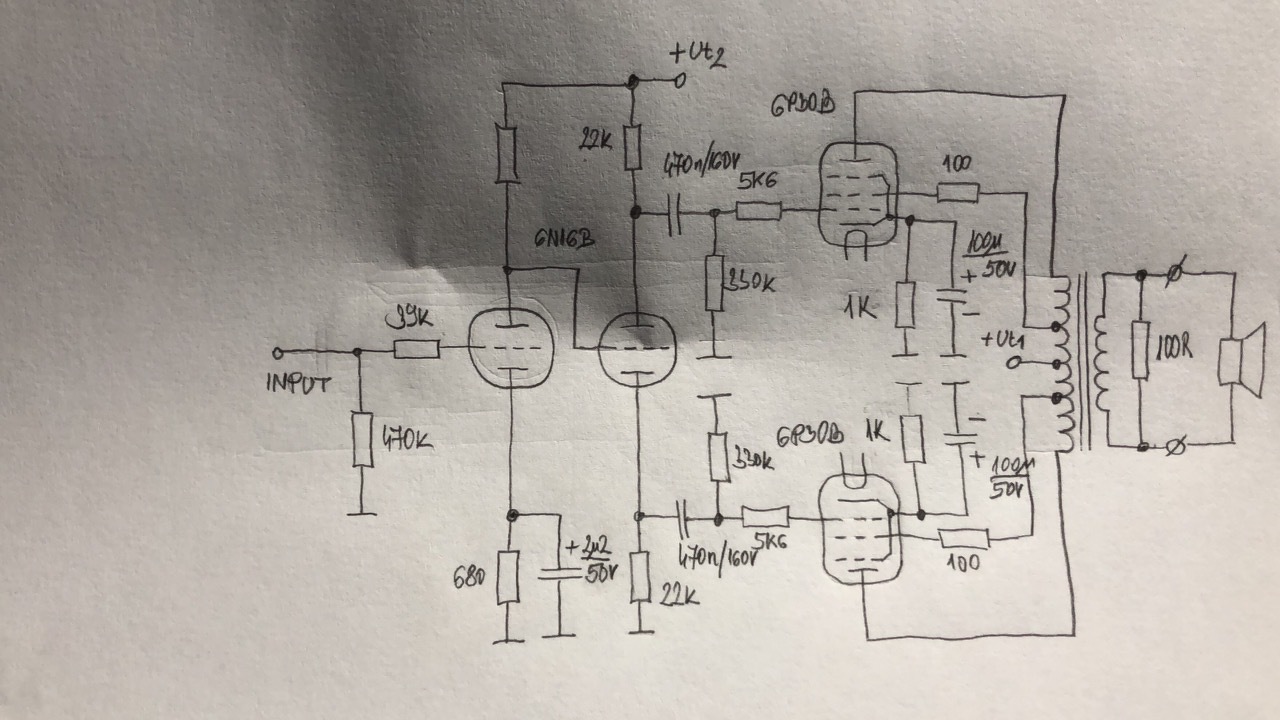 +Ut2
6P30B
22K
470n/160V
5K6
100
6N16B
330K
100µ
50V
+
-
1K
39K
+Ut1
100R
INPUT
470K
330K
6P30B
1K
-
+
100µ
50V
5K6
470n/160V
100
680
+
2µ2
50V
22K